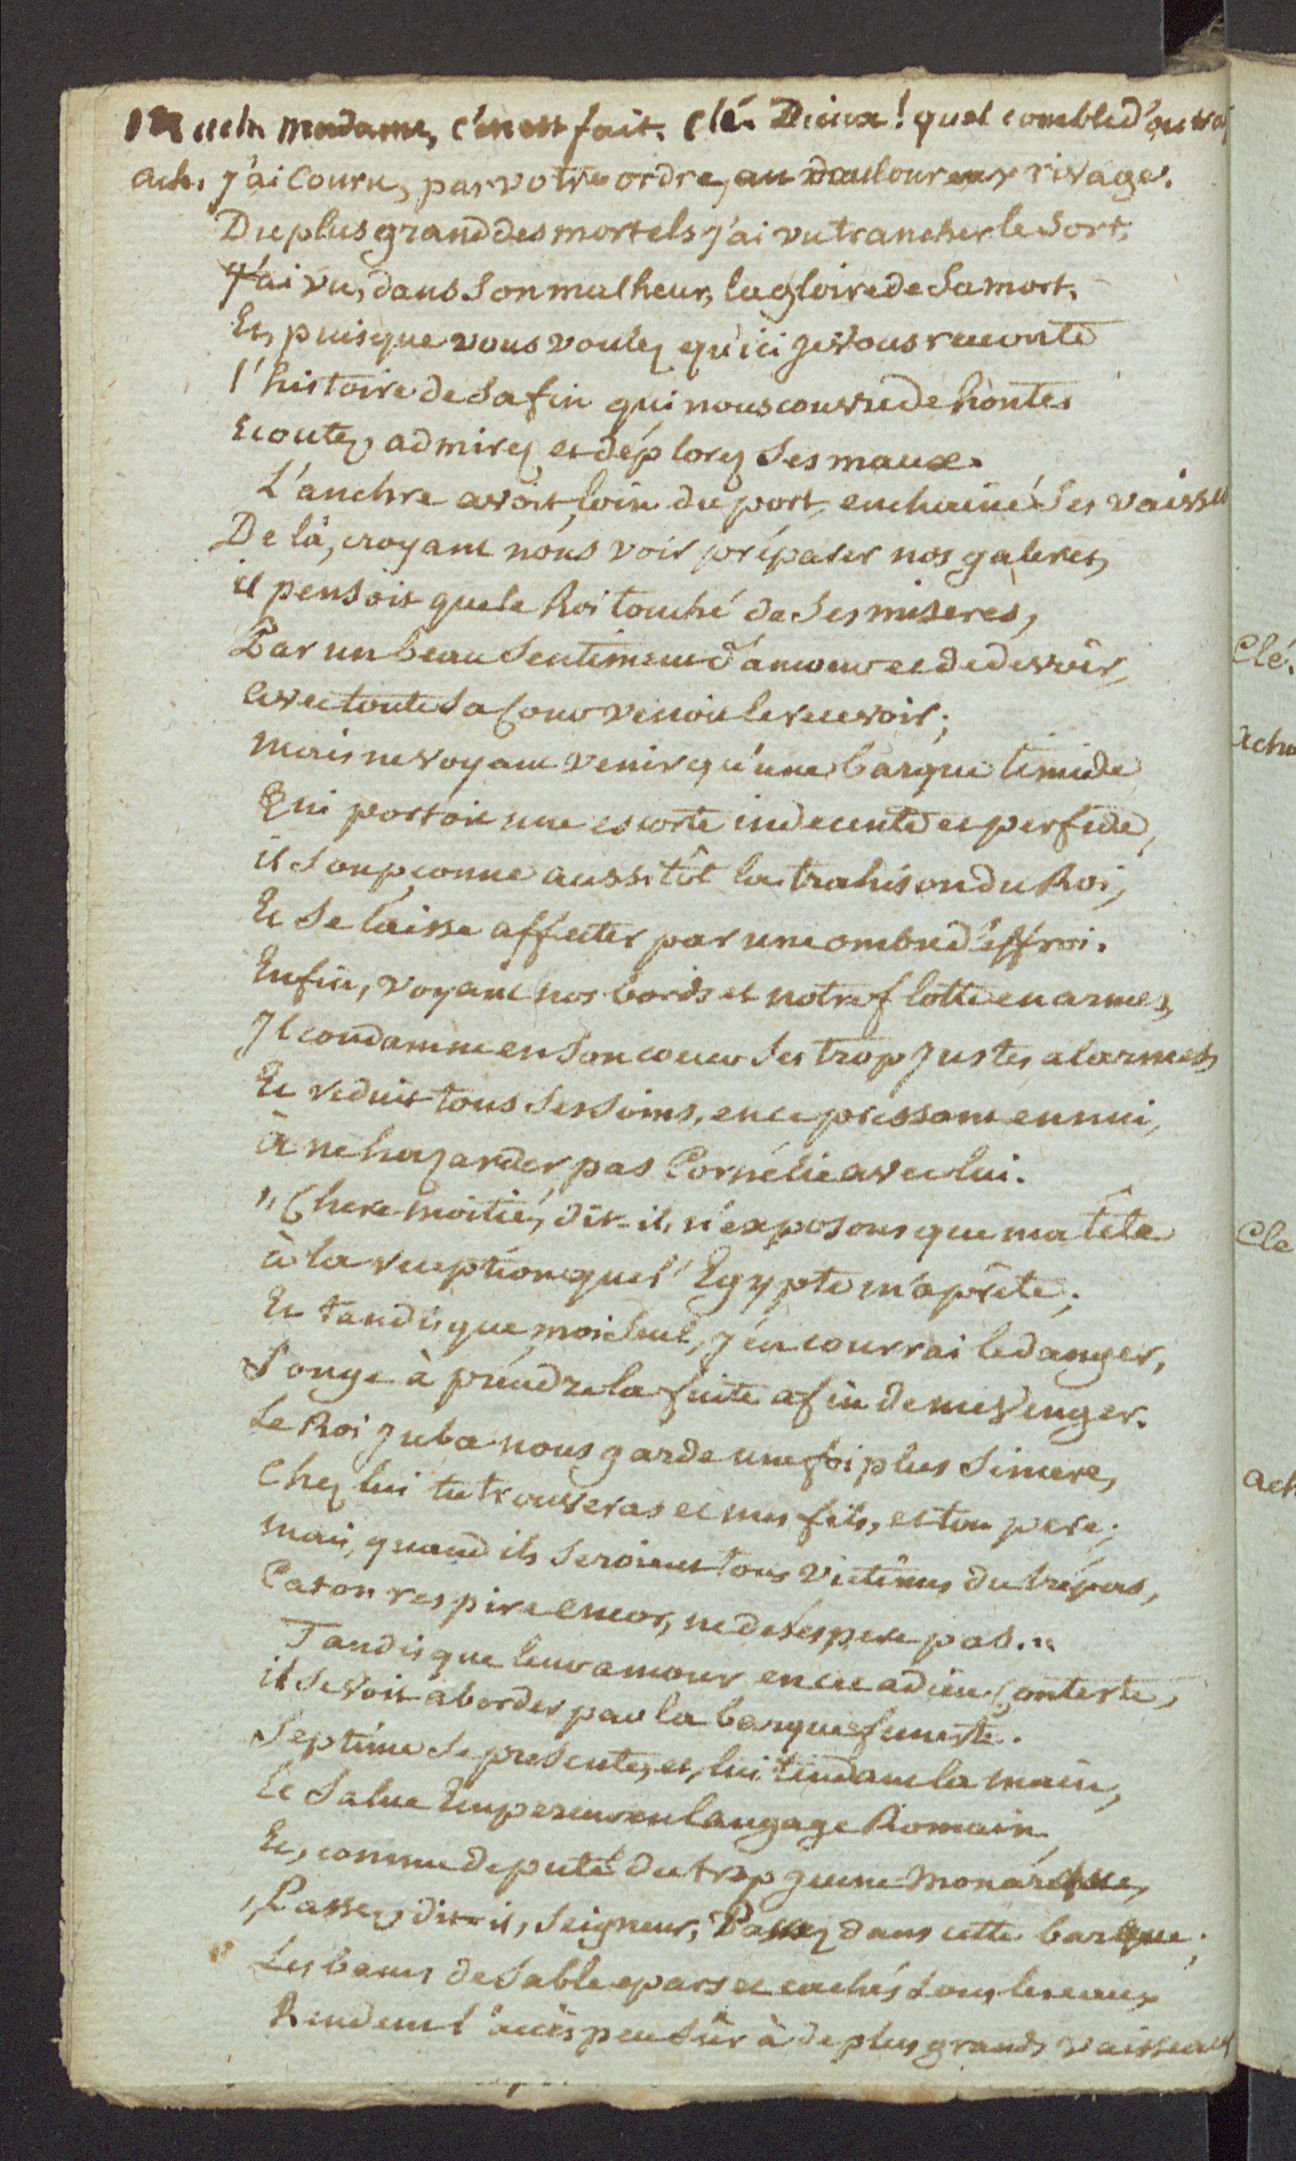 ach. madame, c'en est fait. Clé. Dieux! quel comble d'outra
ach. J'ai couru, par votre ordre, au douloureux rivage.
Du plus grand des mortels j'ai vu trancher le sort,
J'ai vu, dans son malheur, la gloire de sa mort.
Et, puisque vous voulez qu'ici je vous raconte
l'histoire de sa fin qui nous couvre de honte
Ecoutez, admirez et déplorez ses maux.
L'anchre avoit, loin du port, enchainé ses vaisse
De là, croyant nous voir préparer nos galeres,
il pensoit que le Roi touché de ses miseres,
Par un beau sentiment d'amour et de devoir,
avec toute sa Cour venoit le recevoir;
mais ne voyant venir qu'une barque timide
Qui portoit une escorte indecente et perfide,
il soupçonne aussitôt la trahison du Roi,
Et se laisse affecter par une ombre d'effroi.
Enfin, voyant nos bords et notre flotte en armes,
Il condamne en son coeur ses trop justes alarmes,
Et reduit tous ses soins, en ce pressant ennui,
à ne hazarder pas Cornélie avec lui.
"Chere moitié, dit-il, n'exposons que ma tête
à la reception que l'Egypte m'aprête;
Et tandis que, moi seul, j'en courrai le danger,
Songe à prendre la fuite afin de me venger.
Le Roi Juba nous garde une foi plus sincere,
Chez lui tu trouveras et mes fils, et ton pere;
mais, quand ils seroient tous victimes du trépas,
Caton respire encor, ne desespere pas."
Tandis que leur amour en cet adieu conteste,
il se voit aborder par la barque funeste.
Septime se presente, et, lui tendant la main,
Le salue Empereur en langage Romain
Et, comme deputé du trop jeune monarque,
"Passez, dit-il, Seigneur, Passez dans cette barque;
Les bancs de sable epars et cachés sous les eaux
Rendent l'accès peu sûr à de plus grands vaisseaux
Clé.
ach
Cle
ach